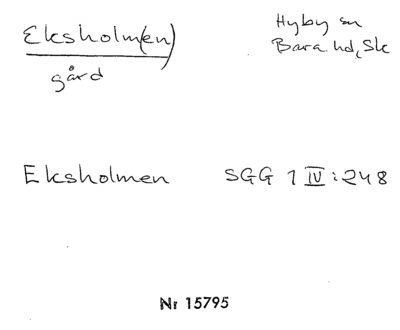 Eksholm(en)
gård
Hyby sn
Bara hd, Sk
Eksholmen SGG 1 IV:248
Nr 15795